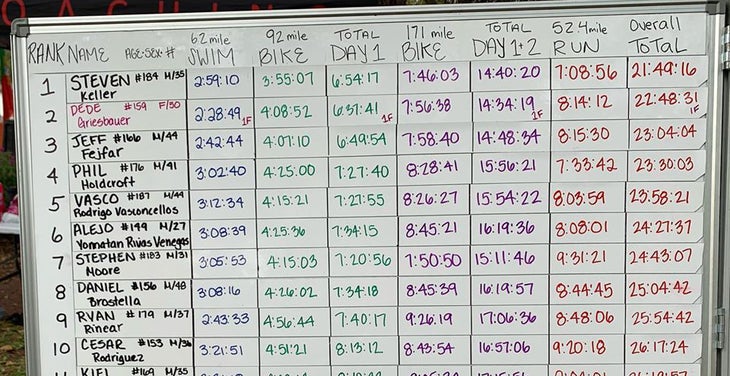 62 mile 92 mile TOTAL 171 mile TOTAL 52.4 mile Overall
RANK NAME AGE-SEX-# SWIM BIKE DAY 1 BIKE DAY 1+2 RUN TOTAL
1 STEVEN #184 M/35 2:59:10 3:55:07 6:54:17 7:46:03 14:40:20 7:08:56 21:49:16
Keller
2 DEDE #159 F/50 2:28:49 1F 4:08:52 6:37:41 1F 7:56:38 14:34:19 1F 8:14:12 22:48:31 1F
Griesbauer
3 JEFF #166 M/49 2:42:44 4:07:10 6:49:54 7:58:40 14:48:34 8:15:30 23:04:04
Fejfar
4 PHIL #176 M/41 3:02:40 4:25:00 7:27:40 8:28:41 15:56:21 7:33:42 23:30:03
Holdcroft
5 VASCO #187 M/44 3:12:34 4:15:21 7:27:55 8:26:27 15:54:22 8:03:59 23:58:21
Rodrigo Vasconcellos
6 ALEJO #199 M/27 3:08:39 4:25:36 7:34:15 8:45:21 16:19:36 8:08:01 24:27:37
Yonnatan Rivas Venegas
7 STEPHEN #183 M/31 3:05:53 4:15:03 7:20:56 7:50:50 15:11:46 9:31:21 24:43:07
Moore
8 DANIEL #156 M/48 3:08:16 4:26:02 7:34:18 8:45:39 16:19:57 8:44:45 25:04:42
Brostella
9 RYAN #179 M/37 2:43:33 4:56:44 7:40:17 9:26:19 17:06:36 8:48:06 25:54:42
Rinear
10 CESAR #153 M/36 3:21:51 4:51:21 8:13:12 8:43:54 16:57:06 9:20:18 26:17:24
Rodriguez
KIEL #169 M/35